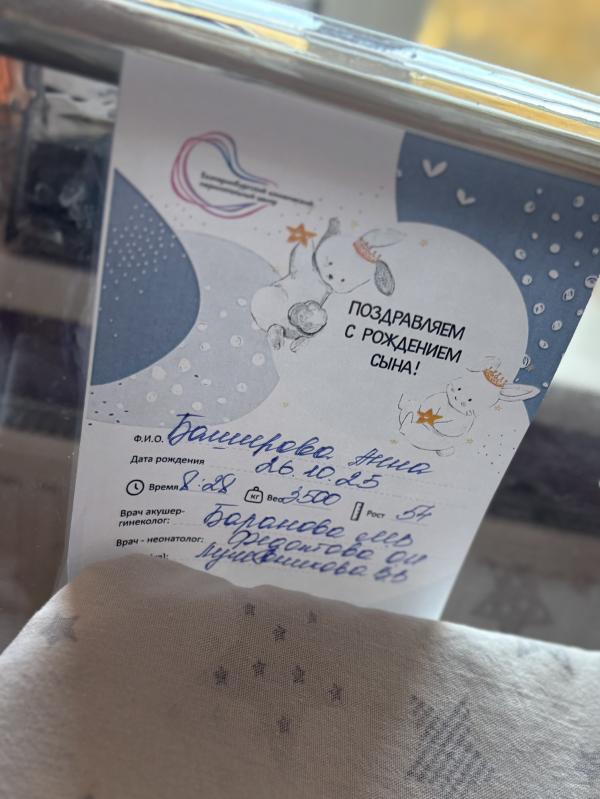 Екатеринбургский клинический
перинатальный центр
ПОЗДРАВЛЯЕМ
С РОЖДЕНИЕМ
СЫНА!
Ф.И.О. Баширова Анна
Дата рождения 26.10.25
Время 8:28 кг Вес 3500 Рост 54
Врач акушер-
гинеколог: Баранова
Врач - неонатолог: